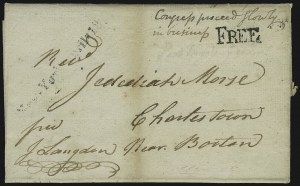 Congress proceed slowly
in business
FREE
Rev
Jedediah Morse
Charlestown
Near Boston
J Langdon